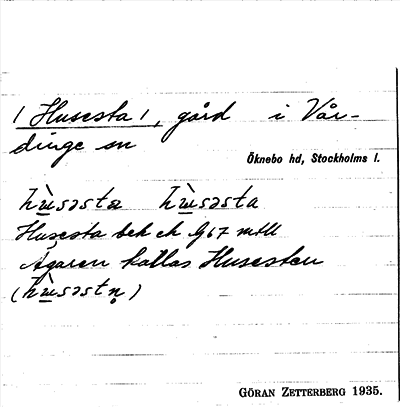 /Husesta/, gård i Vår-
dinge sn
Öknebo hd, Stockholms l.
hùsəsta hùsəsta
Husesta
Ägaren kallas Husesten
(hùsəstn̥)
GÖRAN ZETTERBERG 1935.